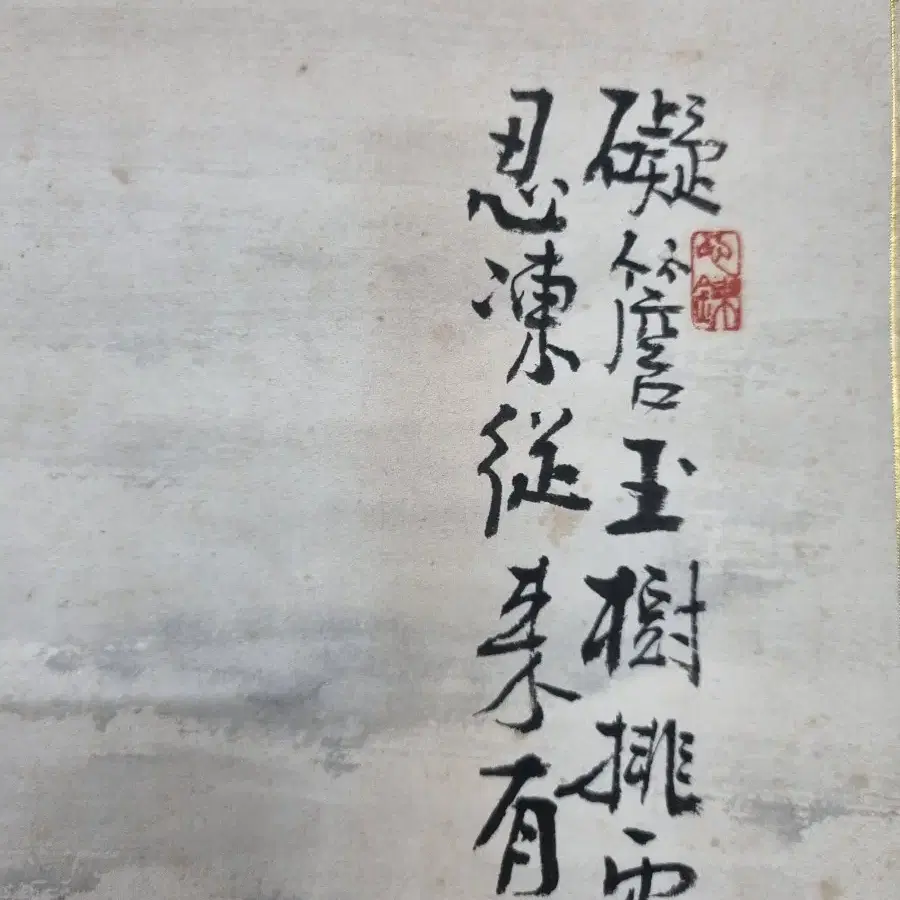 礙簷玉樹排
忍凍從來有